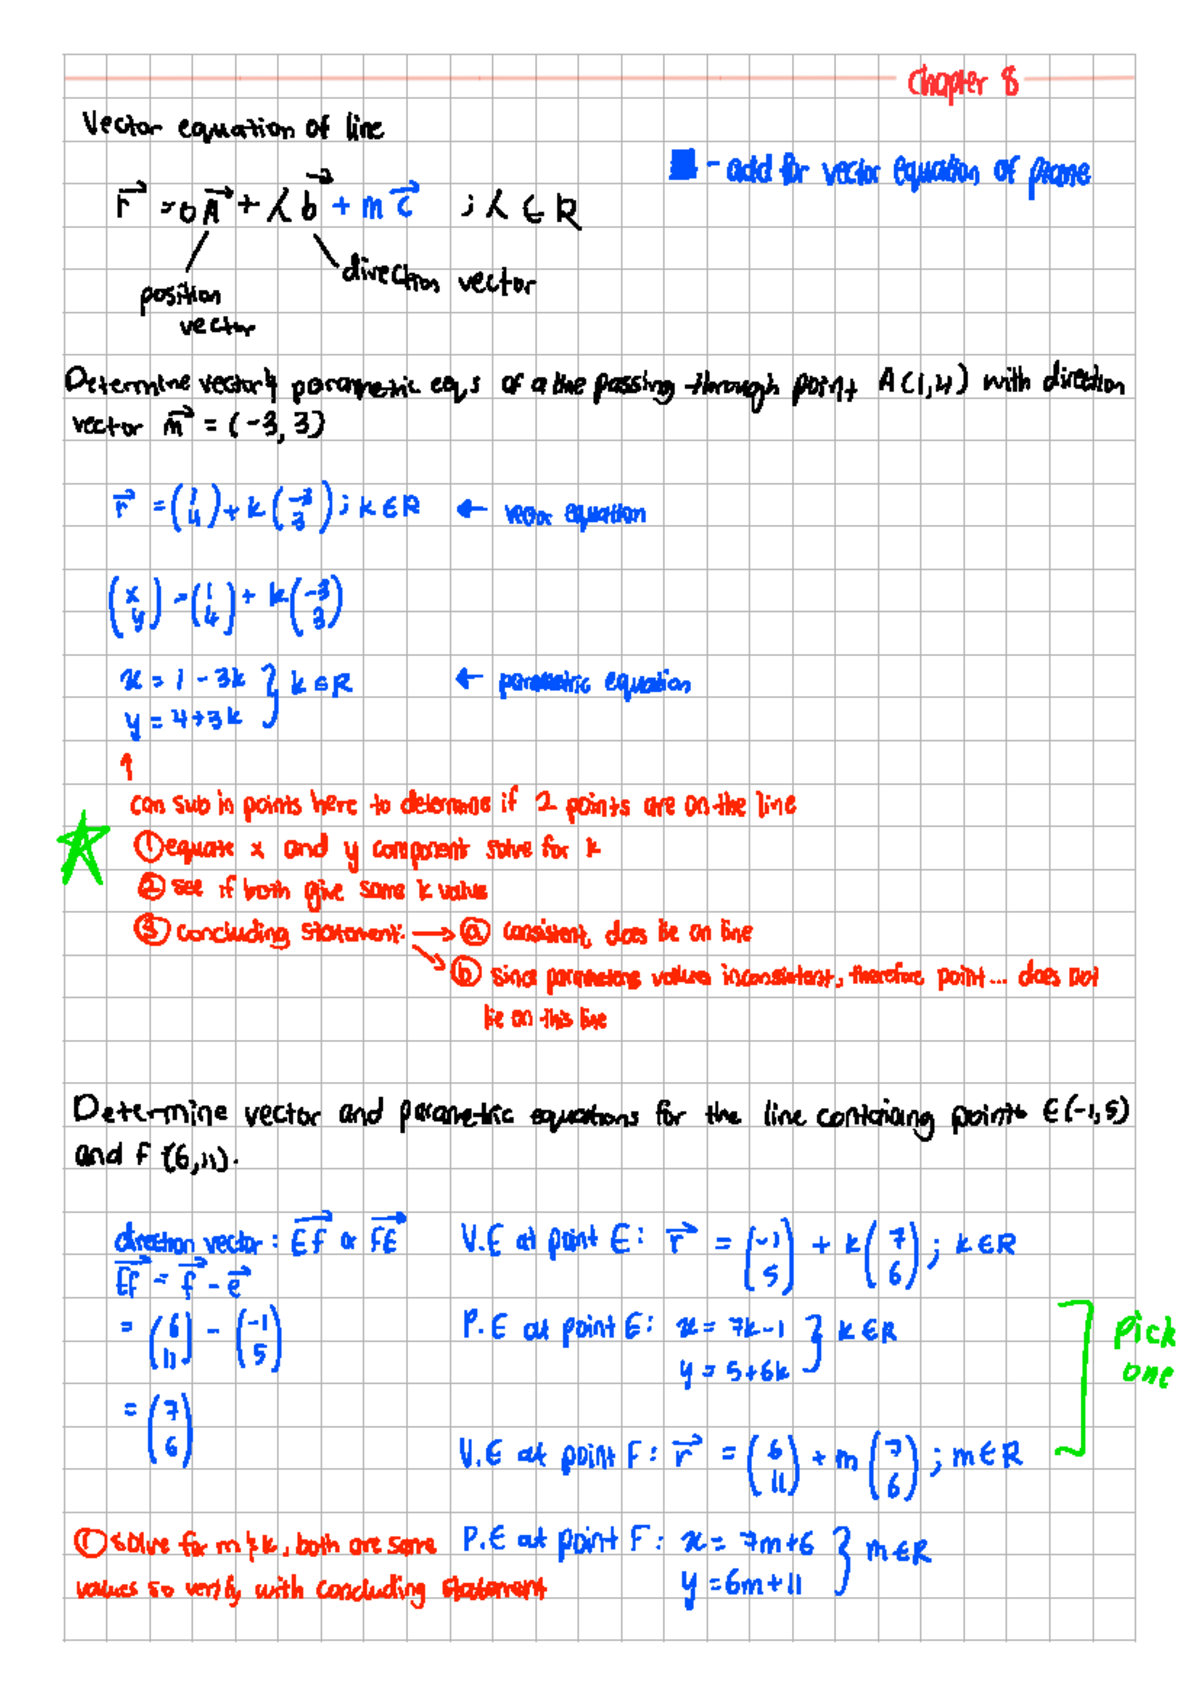 Chapter 8
Vector equation of line
- add for vector equation of plane
r⃗ = oA⃗ + λb⃗ + mc⃗ ; λ ∈ R
position vector
direction vector
Determine vector & parametric eqs of a line passing through point A(1,4) with direction
vector m⃗ = (-3, 3)
r⃗ = (1 4) + k(-3 3) ; k ∈ R ← vector equation
(x y) = (1 4) + k(-3 3)
x = 1 - 3k } k ∈ R ← parametric equation
y = 4 + 3k
↑
can sub in points here to determine if 2 points are on the line
① equate x and y component solve for k
② see if both give same k value
③ concluding statement → ⓐ consistent, does lie on line
ⓑ since parameters values inconsistent, therefore point... does not
lie on this line
Determine vector and parametric equations for the line containing points E(-1,5)
and F (6,11).
direction vector : EF⃗ or FE⃗
EF⃗ = f⃗ - e⃗
= (6 11) - (-1 5)
= (7 6)
V.E at point E: r⃗ = (-1 5) + k(7 6) ; k ∈ R
P.E at point E: x = 7k-1 } k ∈ R
y = 5+6k
Pick
one
V.E at point F: r⃗ = (6 11) + m(7 6) ; m ∈ R
P.E at point F: x = 7m+6 } m ∈ R
y = 6m+11
① solve for m & k, both are same
values so verify with concluding statement